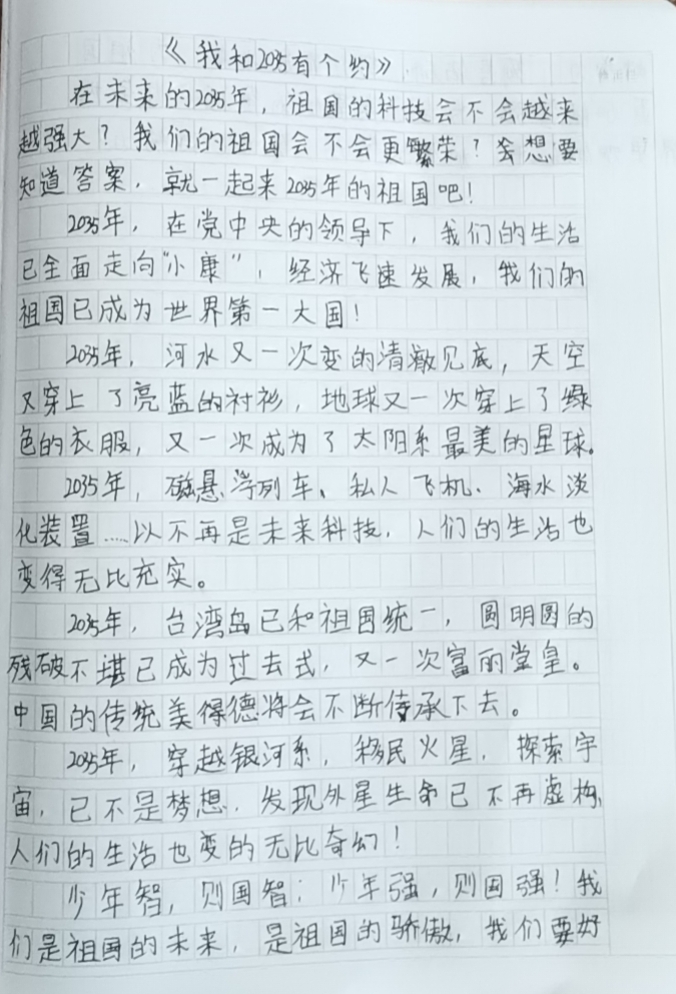 《我和2035有个约》
在未来的2035年，祖国的科技会不会越来
越强大？我们的祖国会不会更繁荣？要想要
知道答案，就一起来2035年的祖国吧！
2035年，在党中央的领导下，我们的生活
已全面走向“小康”，经济飞速发展，我们的
祖国已成为世界第一大国！
2035年，河水又一次变的清澈见底，天空
又穿上了亮蓝的衬衫，地球又一次穿上了绿
色的衣服，又一次成为了太阳系最美的星球。
2035年，磁悬浮列车、私人飞机、海水淡
化装置……以不再是未来科技，人们的生活也
变得无比充实。
2035年，台湾岛已和祖国统一，圆明圆的
残破不堪已成为过去式，又一次富丽堂皇。
中国的传统美得德将会不断传承下去。
2035年，穿越银河系，移民火星，探索宇
宙，已不是梦想，发现外星生命已不再虚构，
人们的生活也变的无比奇幻！
少年智，则国智；少年强，则国强！我
们是祖国的未来，是祖国的骄傲，我们要好